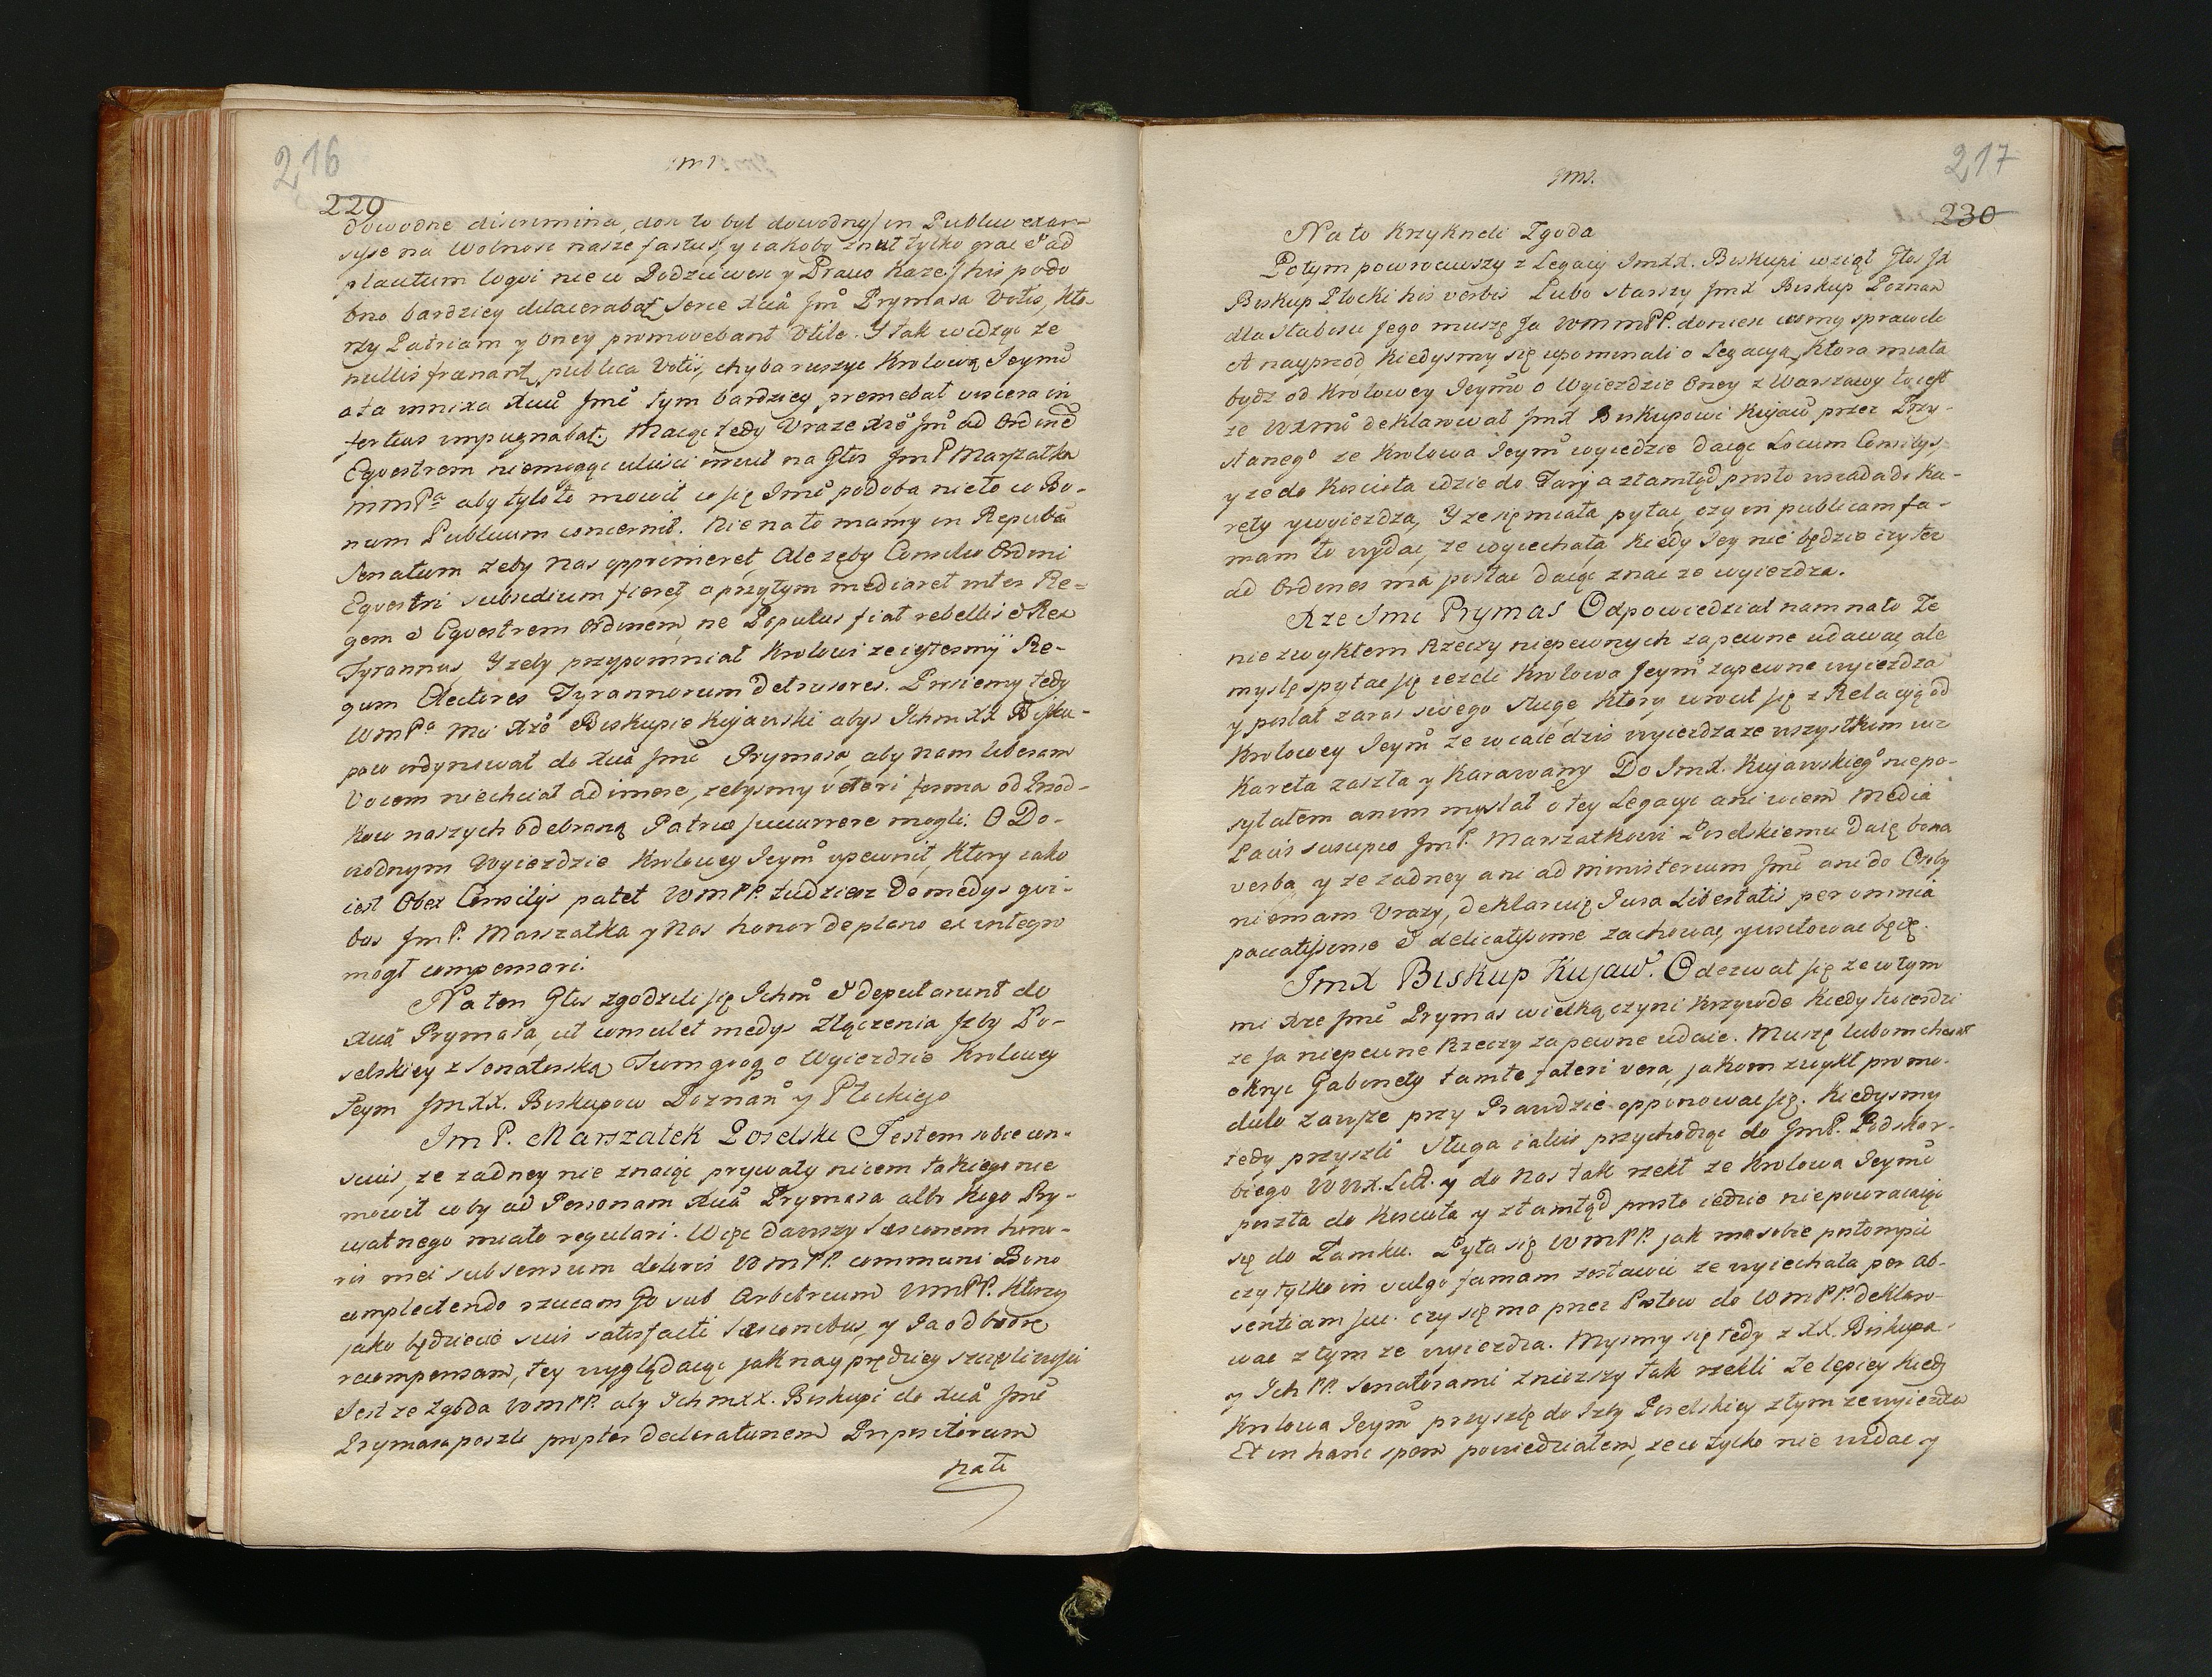 216
229
dowodne discrimina, dosc to był dowodny in Publico exar-
sysse na Wolnosc nasze fastus, y iakoby znał tylko grac & ad
plausum loqui nie co Podzciwosc y Prawo każe, his podo
bno bardziey dilacerabat serce Xcia Jm Prymasa Votis, kto
rzy Patriam y oney promovebant Utile. Y tak widząc ze
nullis frenant publica Votis, chyba ruszyc Krolową Jeymc
ata innixa Xciu Jmc tym bardziey premebat viscera in
fortius impugnabat. Maiąc tedy Uraze Xże Jm ad Ordine
Equestrem niemogąc uliscic inuit na Głos JmP Marszałka
mmPa aby tylo to mowił co się Jmc podoba nie to co Bo-
num Publicum concernit. Nie na to mamy in Republica
Senatum zeby nas opprimeret, ale zeby Consilio Ordini
Equestri subsidium fieret, a przytym mediaret inter Re-
gem & Equestrem Ordinem, ne Populus fiat rebellis & Rex
Tyrannus, Y zeby przypomniał Krolowi ze iestesmy Re-
gum Electores Tyrannorum detrusores. Prosiemy tedy
WmPa Mci Xże Biskupie Kujawski abys Ichm XX Bisku-
pow ordynował do Xcia Jmc Prymasa, aby nam liberam
Vocem niechciał adimere, zebysmy veteri forma od Przod-
kow naszych odebraną Patriae succurrere mogli. O Do-
wodnym Wyiezdzie Krolowey Jeym upewnił, ktory iako
iest Obex Consilijs patet WmPP. tudziesz do medys qui-
bus JmP. Marszałka y Nas honor de plano ex integro
mogł compensari.
Na ten Głos zgodzili się Ichm & deputarunt do
Xcia Prymasa, ut consulet medys złączenia Izby Po-
selskiey z Senatorską Tum quoq o Wyiezdzie Krolowey
Jeym JmXX. Biskupow Poznan y Płockiego
Jm P. Marszałek Poselski Jestem sobie con-
scius, ze zadney nie znaiąc prywaty nicem takiego nie
mowił coby ad Personam Xcia Prymasa albo kogo Pry-
watnego miało regulari. Więc dawszy laesionem hono-
ris mei sub sensum doloris WmPP. communi Bono
complectendo rzucam Go sub Arbitrium WmPP. Ktorzy
jako będziecie suis satisfacti laesionibus, y Ja odbiorę
recompensam, tey wyglądaiąc jak nayprędzey szczęsliwosci
Jest ze Zgoda WmPP. aby IchmXX. Biskupi do Xcia Jmc
Prymasa poszli propter declarationem Propositorum
Na to
217
Jms.
230
Na to Krzykneli Zgoda
Potym powrociwszy z Legacij JmXX. Biskupi wziął Głos JX
Biskup Płocki his verbis Lubo starszy JmX Biskup Poznan
dla słabosci Jego muszę Ja WmmPP. doniesc cosmy sprawili
A nayprzod kiedysmy się upominali o Legacyą, ktora miała
bydz od Krolowey Jeymc o Wyiezdzie oney z Warszawy to iest
ze WXmc deklarował JmX Biskupowi Kujaw przez Przy-
stanego ze Krolowa Jeym wyiedzie daiąc Locum Consilys
y ze do Koscioła idzie do Fary a ztamtąd prosto wsiada do Ka-
rety y wyiezdza, Y ze się miała pytac, czy in publicam fa-
mam to wydac, ze wyiechała kiedy Jey nie będzie czy tez
ad Ordines ma posłac daiąc znac ze wyiezdza.
Xze Jmc Prymas Odpowiedział nam na to Ze
nie zwykłem Rzeczy niepewnych za pewne udawac, ale
myslę spytac się iezeli Krolowa Jeym zapewne wyiezdza
y posłał zaraz swego sługę, ktory wrocił się z Relacyą od
Krolowey Jeym ze wcale dzis wyiezdza ze wszystkim iuz
Kareta zaszła y Karawany Do JmX. Kujawskieg niepo-
syłałem anim myslał o tey Legacyi ani wiem Media
Pacis suscipio JmP. Marszałkowi Poselskiemu daię bona
verba, y ze zadney ani ad ministerium Jmc ani do Osoby
niemam Urazy, deklaruię Jura Libertatis per omnia
pacatissime & delicatissime zachowac, y usiłowac będę.
JmX Biskup Kujaw. Odezwał się ze w tym
mi Xze Jmc Prymas wielką czyni krzywdę kiedy twierdzi
ze Ja niepewne Rzeczy za pewne udaię. Muszę lubom chciał
okryc Gabinety tamte fateri vera, jakom zwykł pro mo-
dulo zawsze przy Prawdzie opponowac się. Kiedysmy
tedy przyszli Sługa ialuis przychodząc do JmP. Podskar-
biego WWX.Litt. y do nas tak rzekł ze Krolowa Jeymc
poszła do Koscioła y ztamtąd prosto iedzie nie powracaiąc
się do Zamku. Pyta się WmPP. jak ma sobie postompic
czy tylko in vulgo famam zostawic ze wyiechała per ab-
sentiam suc. czy się ma przez Posłow do WmPP. deklaro-
wac z tym ze wyiezdza. Mysmy się tedy z XX. Biskupa-
y Ich PP. Senatorami zniozszy tak rzekli Ze lepiey kiedy
Krolowa Jeym przyszlę do Izby Poselskiey z tym ze wyiezdza
Et in hanc spem powiedziałem, ze co tylko nie widac y